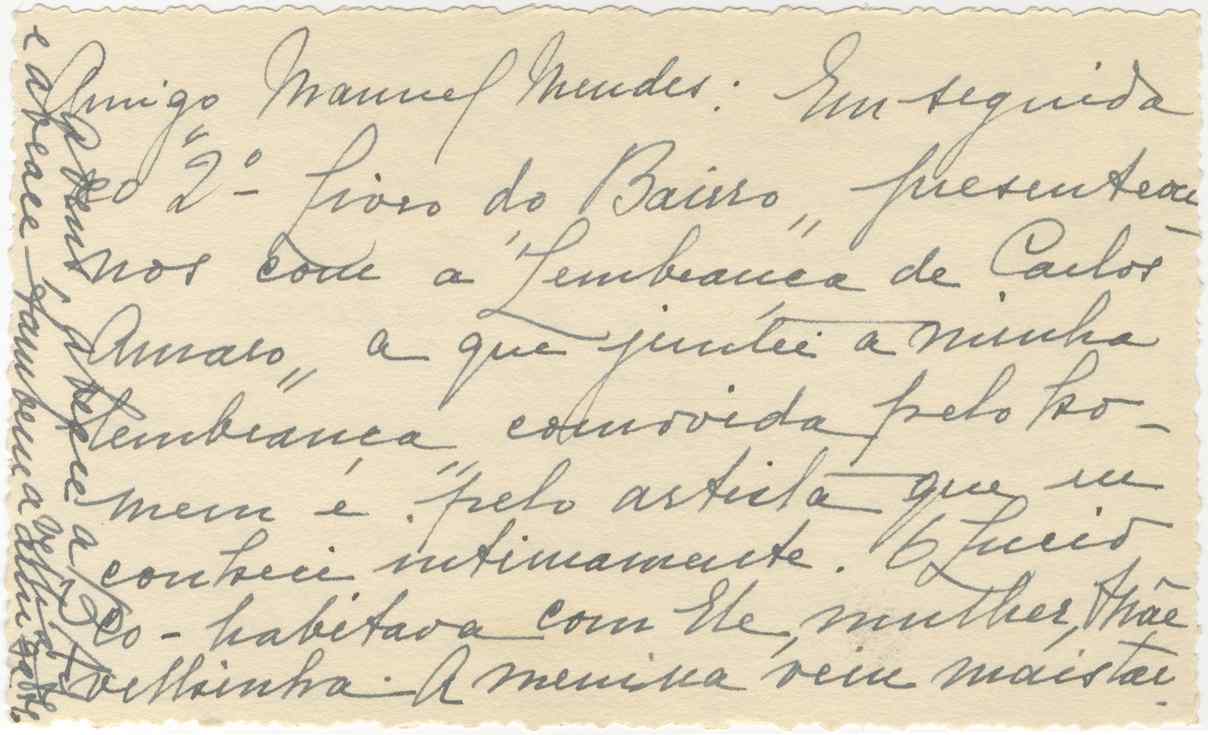 Amigo Manuel Mendes: Em seguida
ao "2º Livro do Bairro" presenteou-
nos com a "Lembrança de Carlos
Amaro" a que juntei a minha
lembrança comovida pelo ho-
mem e pelo artista que eu
conheci intimamente. O Lucio
co-habitava com Ele, mulher, Mãe
velhinha. A menina veio mais tar-
e abrace tambem a
velha